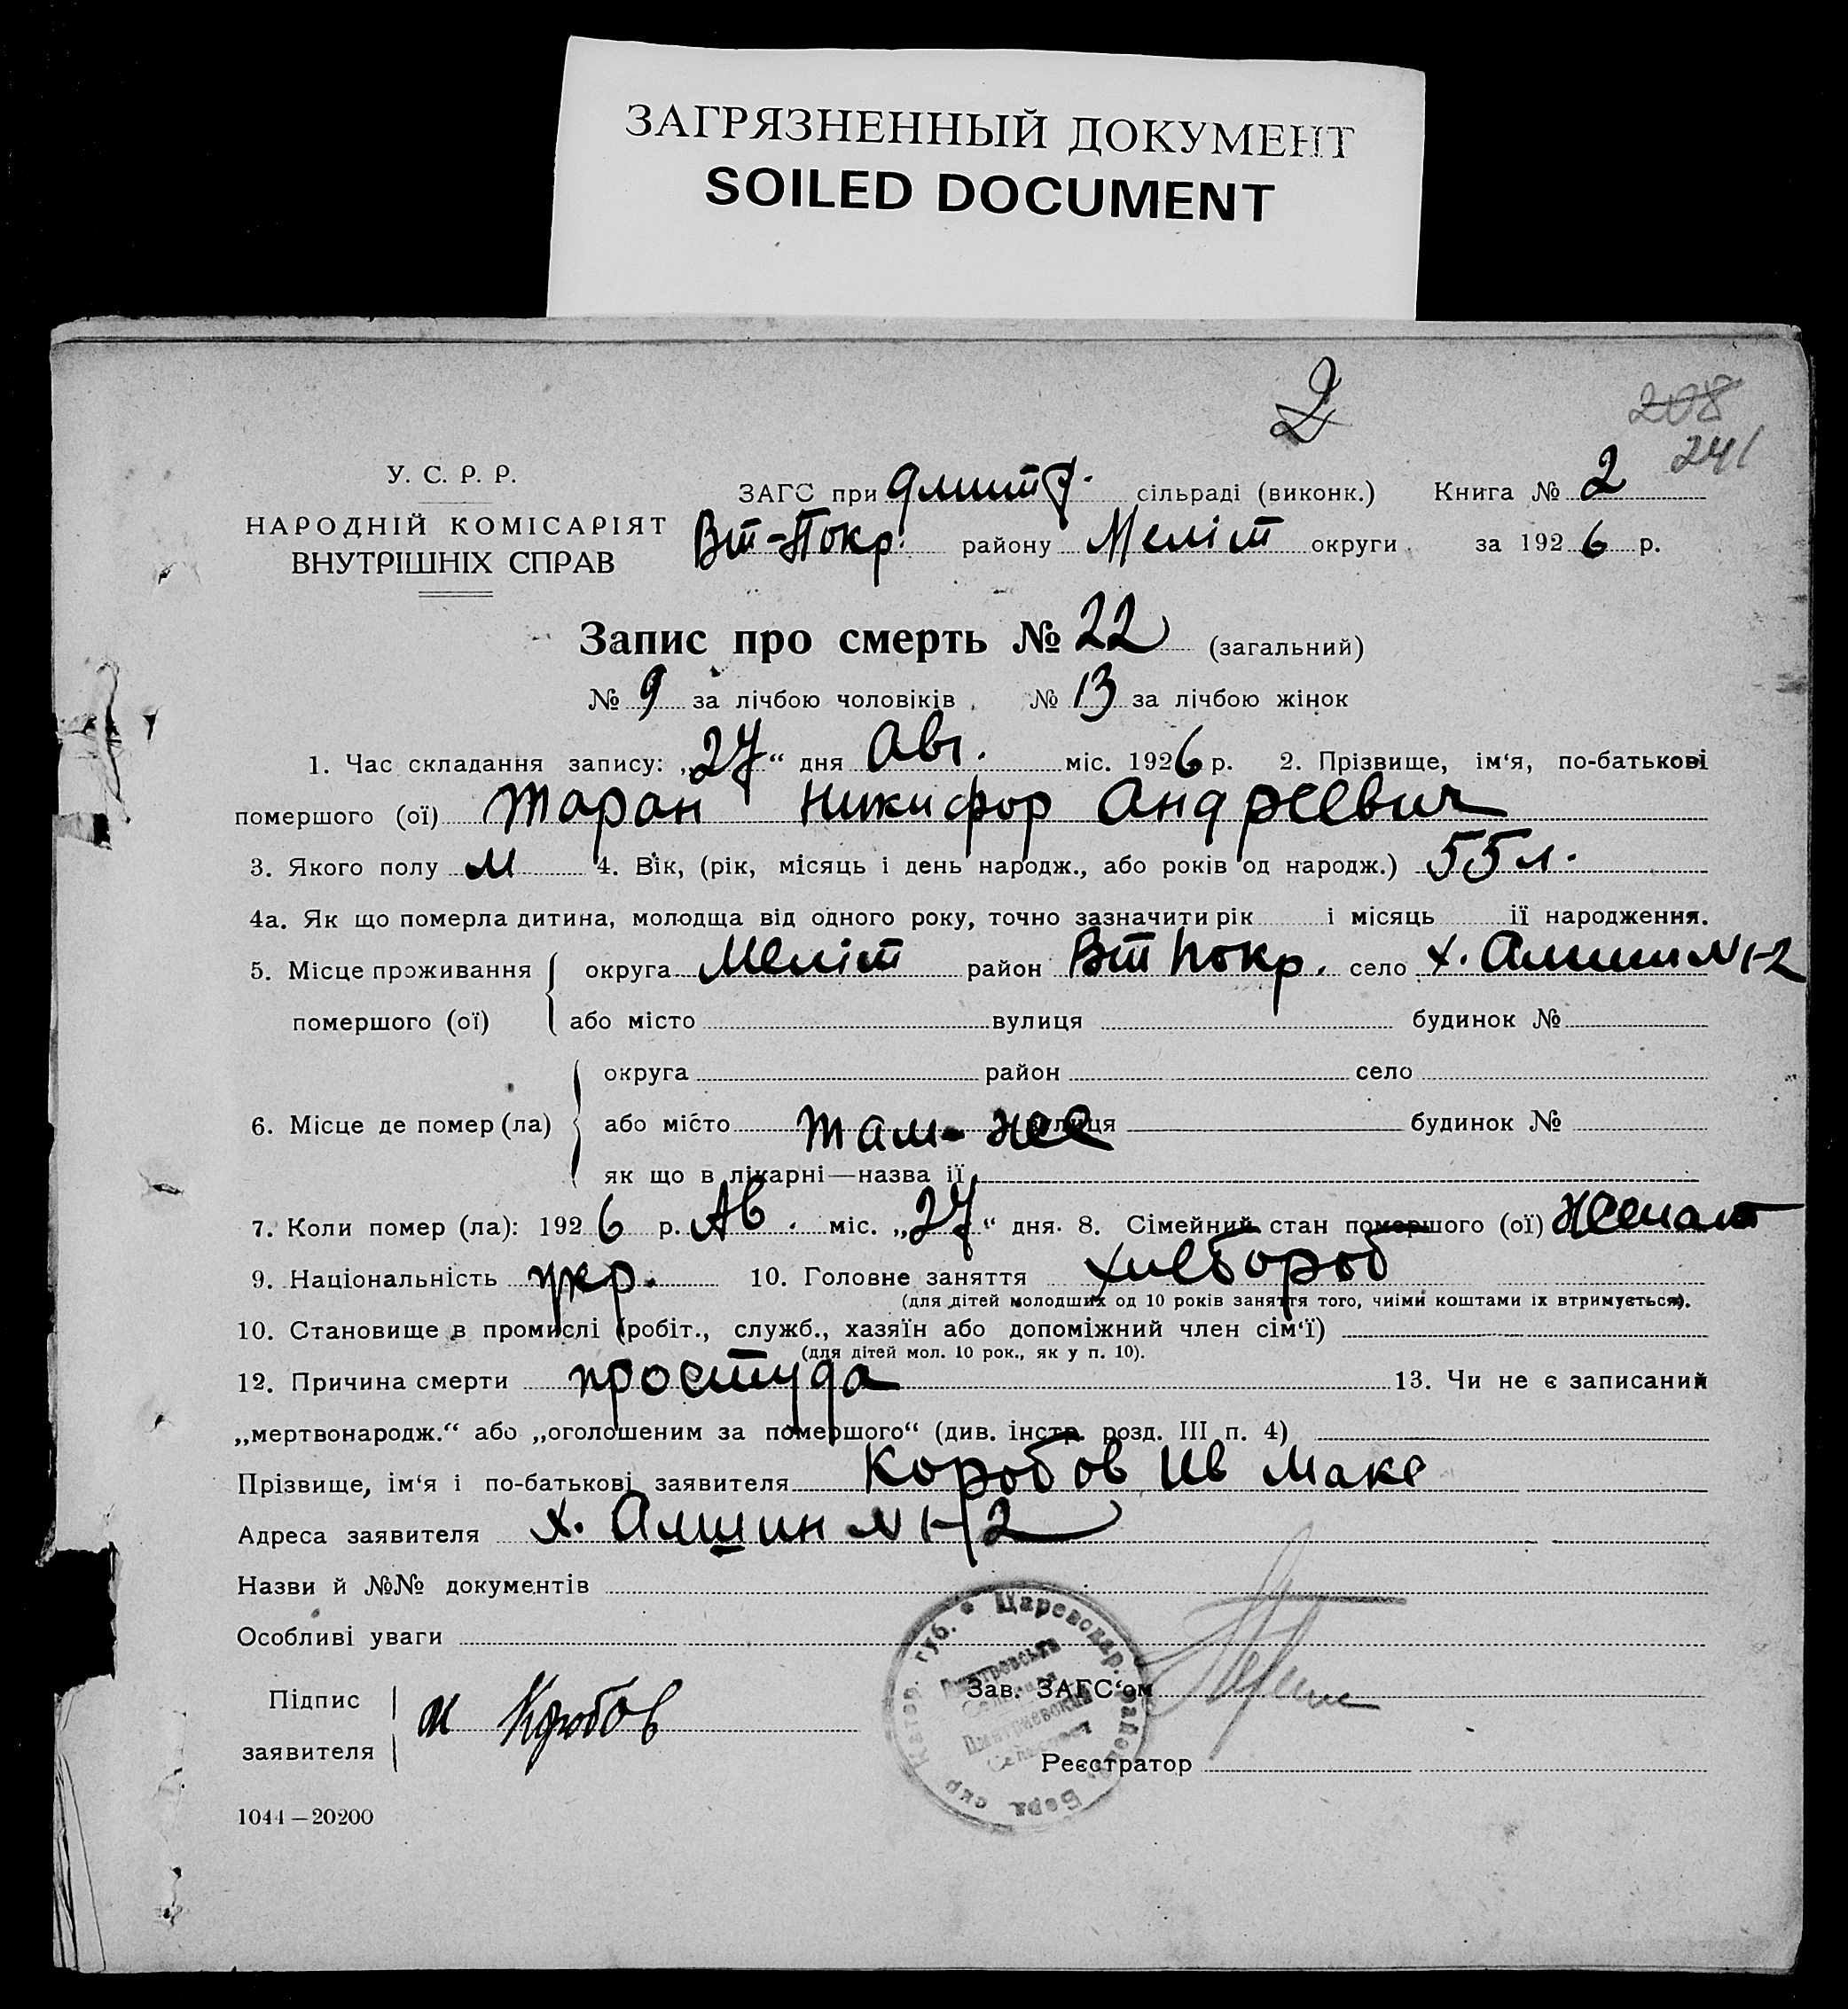 ЗАГРЯЗНЕННЫЙ ДОКУМЕНТ
SOILED DOCUMENT
2
208
241
У. С. Р. Р.
НАРОДНІЙ КОМІСАРІЯТ
ВНУТРІШНІХ СПРАВ
ЗАГС при Дмитр. сільраді (виконк.) Книга № 2
Вт-Покр. району Меліт округи за 1926 р.
Запис про смерть № 22 (загальний)
№ 9 за лічбою чоловіків. № 13 за лічбою жінок
1. Час складання запису: „27“ дня Авг. міс. 1926 р. 2. Прізвище, ім‘я, по-батькові
помершого (ої) Таран Никифор Андреевич
3. Якого полу м 4. Вік, (рік, місяць і день народж., або років од народж.) 55 л.
4а. Як що померла дитина, молодща від одного року, точно зазначити рік і місяць її народження.
5. Місце проживання округа Меліт район Вт Покр. село х. Алшин №1-2
помершого (ої) або місто вулиця будинок №
округа район село
6. Місце де помер (ла) або місто там-же вулиця будинок №
як що в лікарні—назва її
7. Коли помер (ла): 1926 р. Ав. міс. „27“ дня. 8. Сімейний стан помершого (ої) женат
9. Національність укр. 10. Головне заняття хлебороб
(для дітей молодших од 10 років заняття того, чиїми коштами їх втримується).
10. Становище в промислі (робіт., служб., хазяїн або допоміжний член сім‘ї)
(для дітей мол. 10 рок., як у п. 10).
12. Причина смерти простуда 13. Чи не є записаний
„мертвонародж.“ або „оголошеним за помершого“ (див. інстр. розд. III п. 4)
Прізвище, ім‘я і по-батькові заявителя Коробов Ив Макс
Адреса заявителя х. Алшин №1-2
Назви й №№ документів
Особливі уваги
Підпис
заявителя И Коробов
Зав. ЗАГС‘ом
Реєстратор
1044—20200